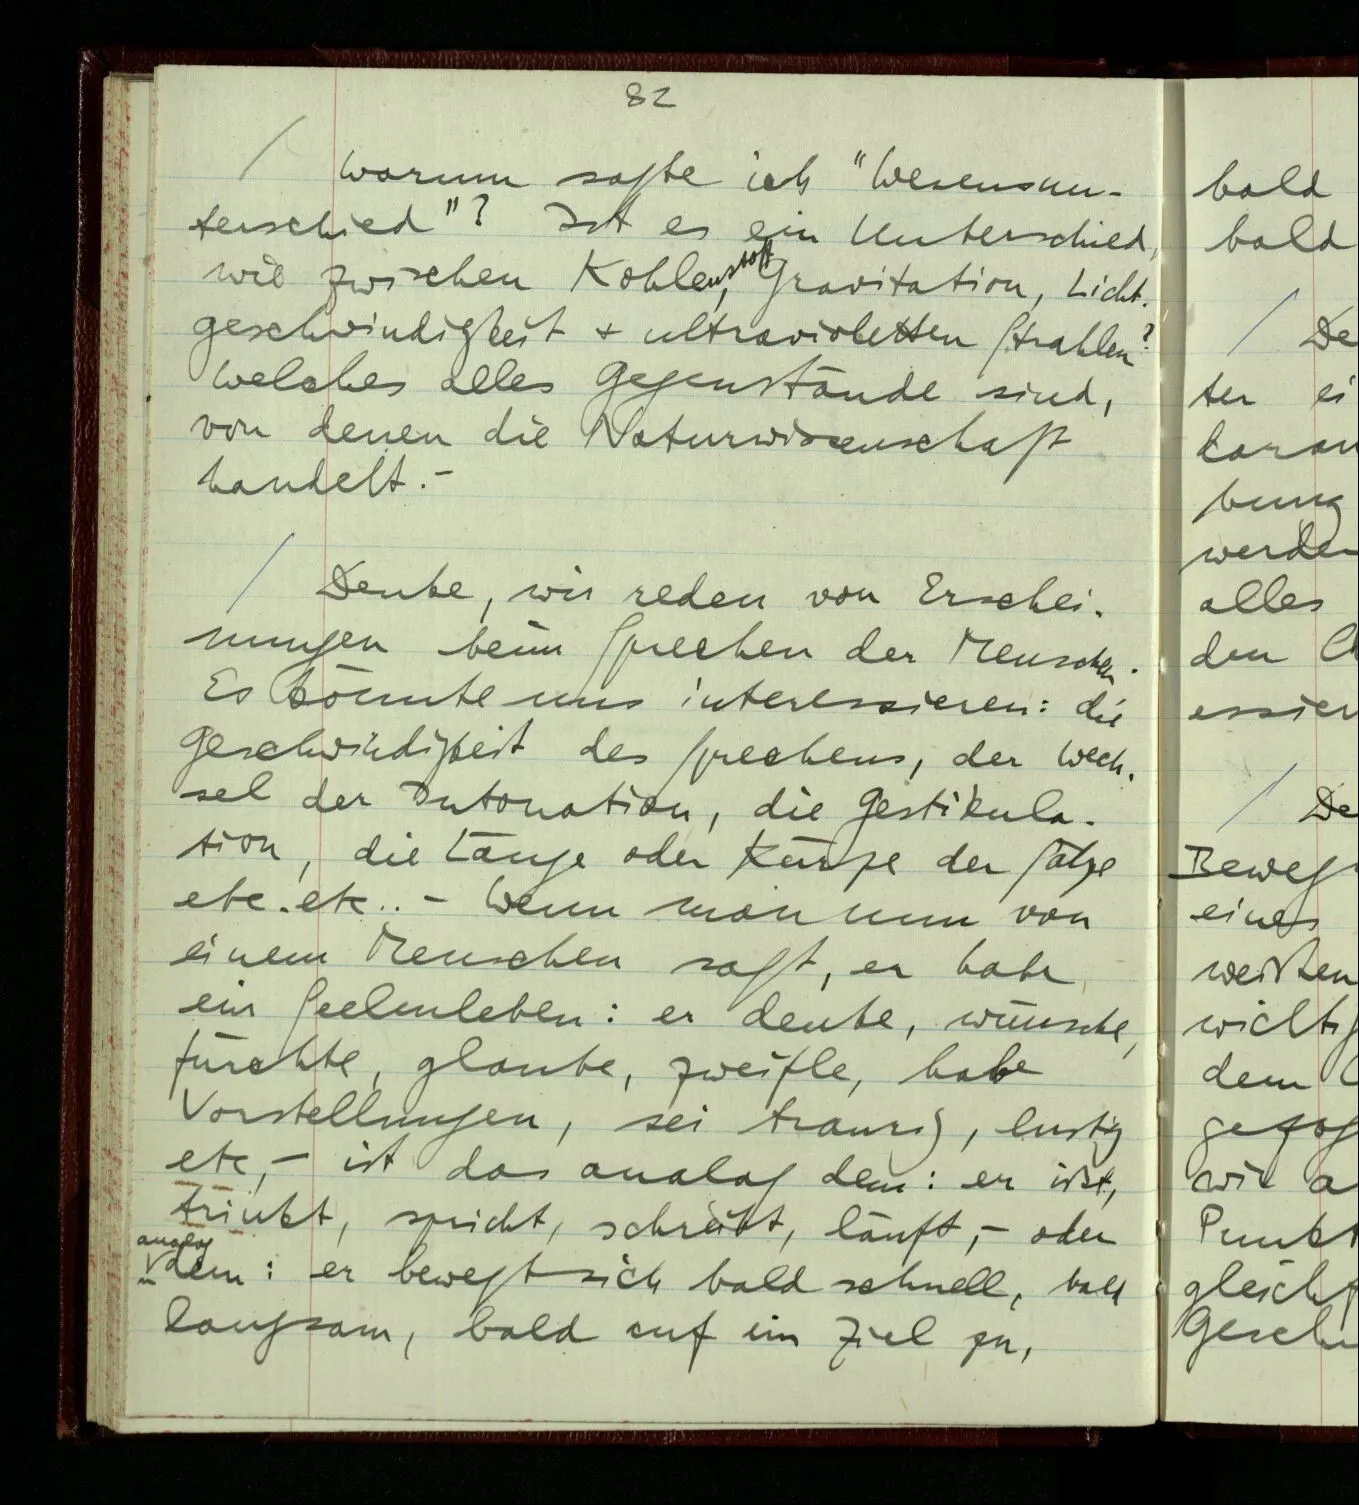 82
/ Warum sagte ich "Wesensun-
terschied"? Ist es ein Unterschied,
wie zwischen Kohlenstoff, Gravitation, Licht-
geschwindigkeit + ultravioletten Strahlen?
Welches alles Gegenstände sind,
von denen die Naturwissenschaft
handelt. –
/ Denke, wir reden von Erschei-
nungen beim Sprechen der Menschen.
Es könnte uns interessieren: die
Geschwindigkeit des Sprechens, der Wech-
sel der Intonation, die Gestikula-
tion, die Länge oder Kürze der Sätze
etc. etc.. – Wenn man nun von
einem Menschen sagt, er habe
ein Seelenleben: er denke, wünsche,
fürchte, glaube, zweifle, habe
Vorstellungen, sei traurig, lustig
etc, – ist das analog dem: er isst,
trinkt, spricht, schreibt, läuft, – oder
analog
dem: er bewegt sich bald schnell, bald
langsam, bald auf ein Ziel zu,
bald
bald
/ De
ter ei
daran
bung
werden
alles
den
essier
/ De
Beweg
eines
weiten
wichtig
dem
gezog
wie a
Punkt
gleich
Gesch